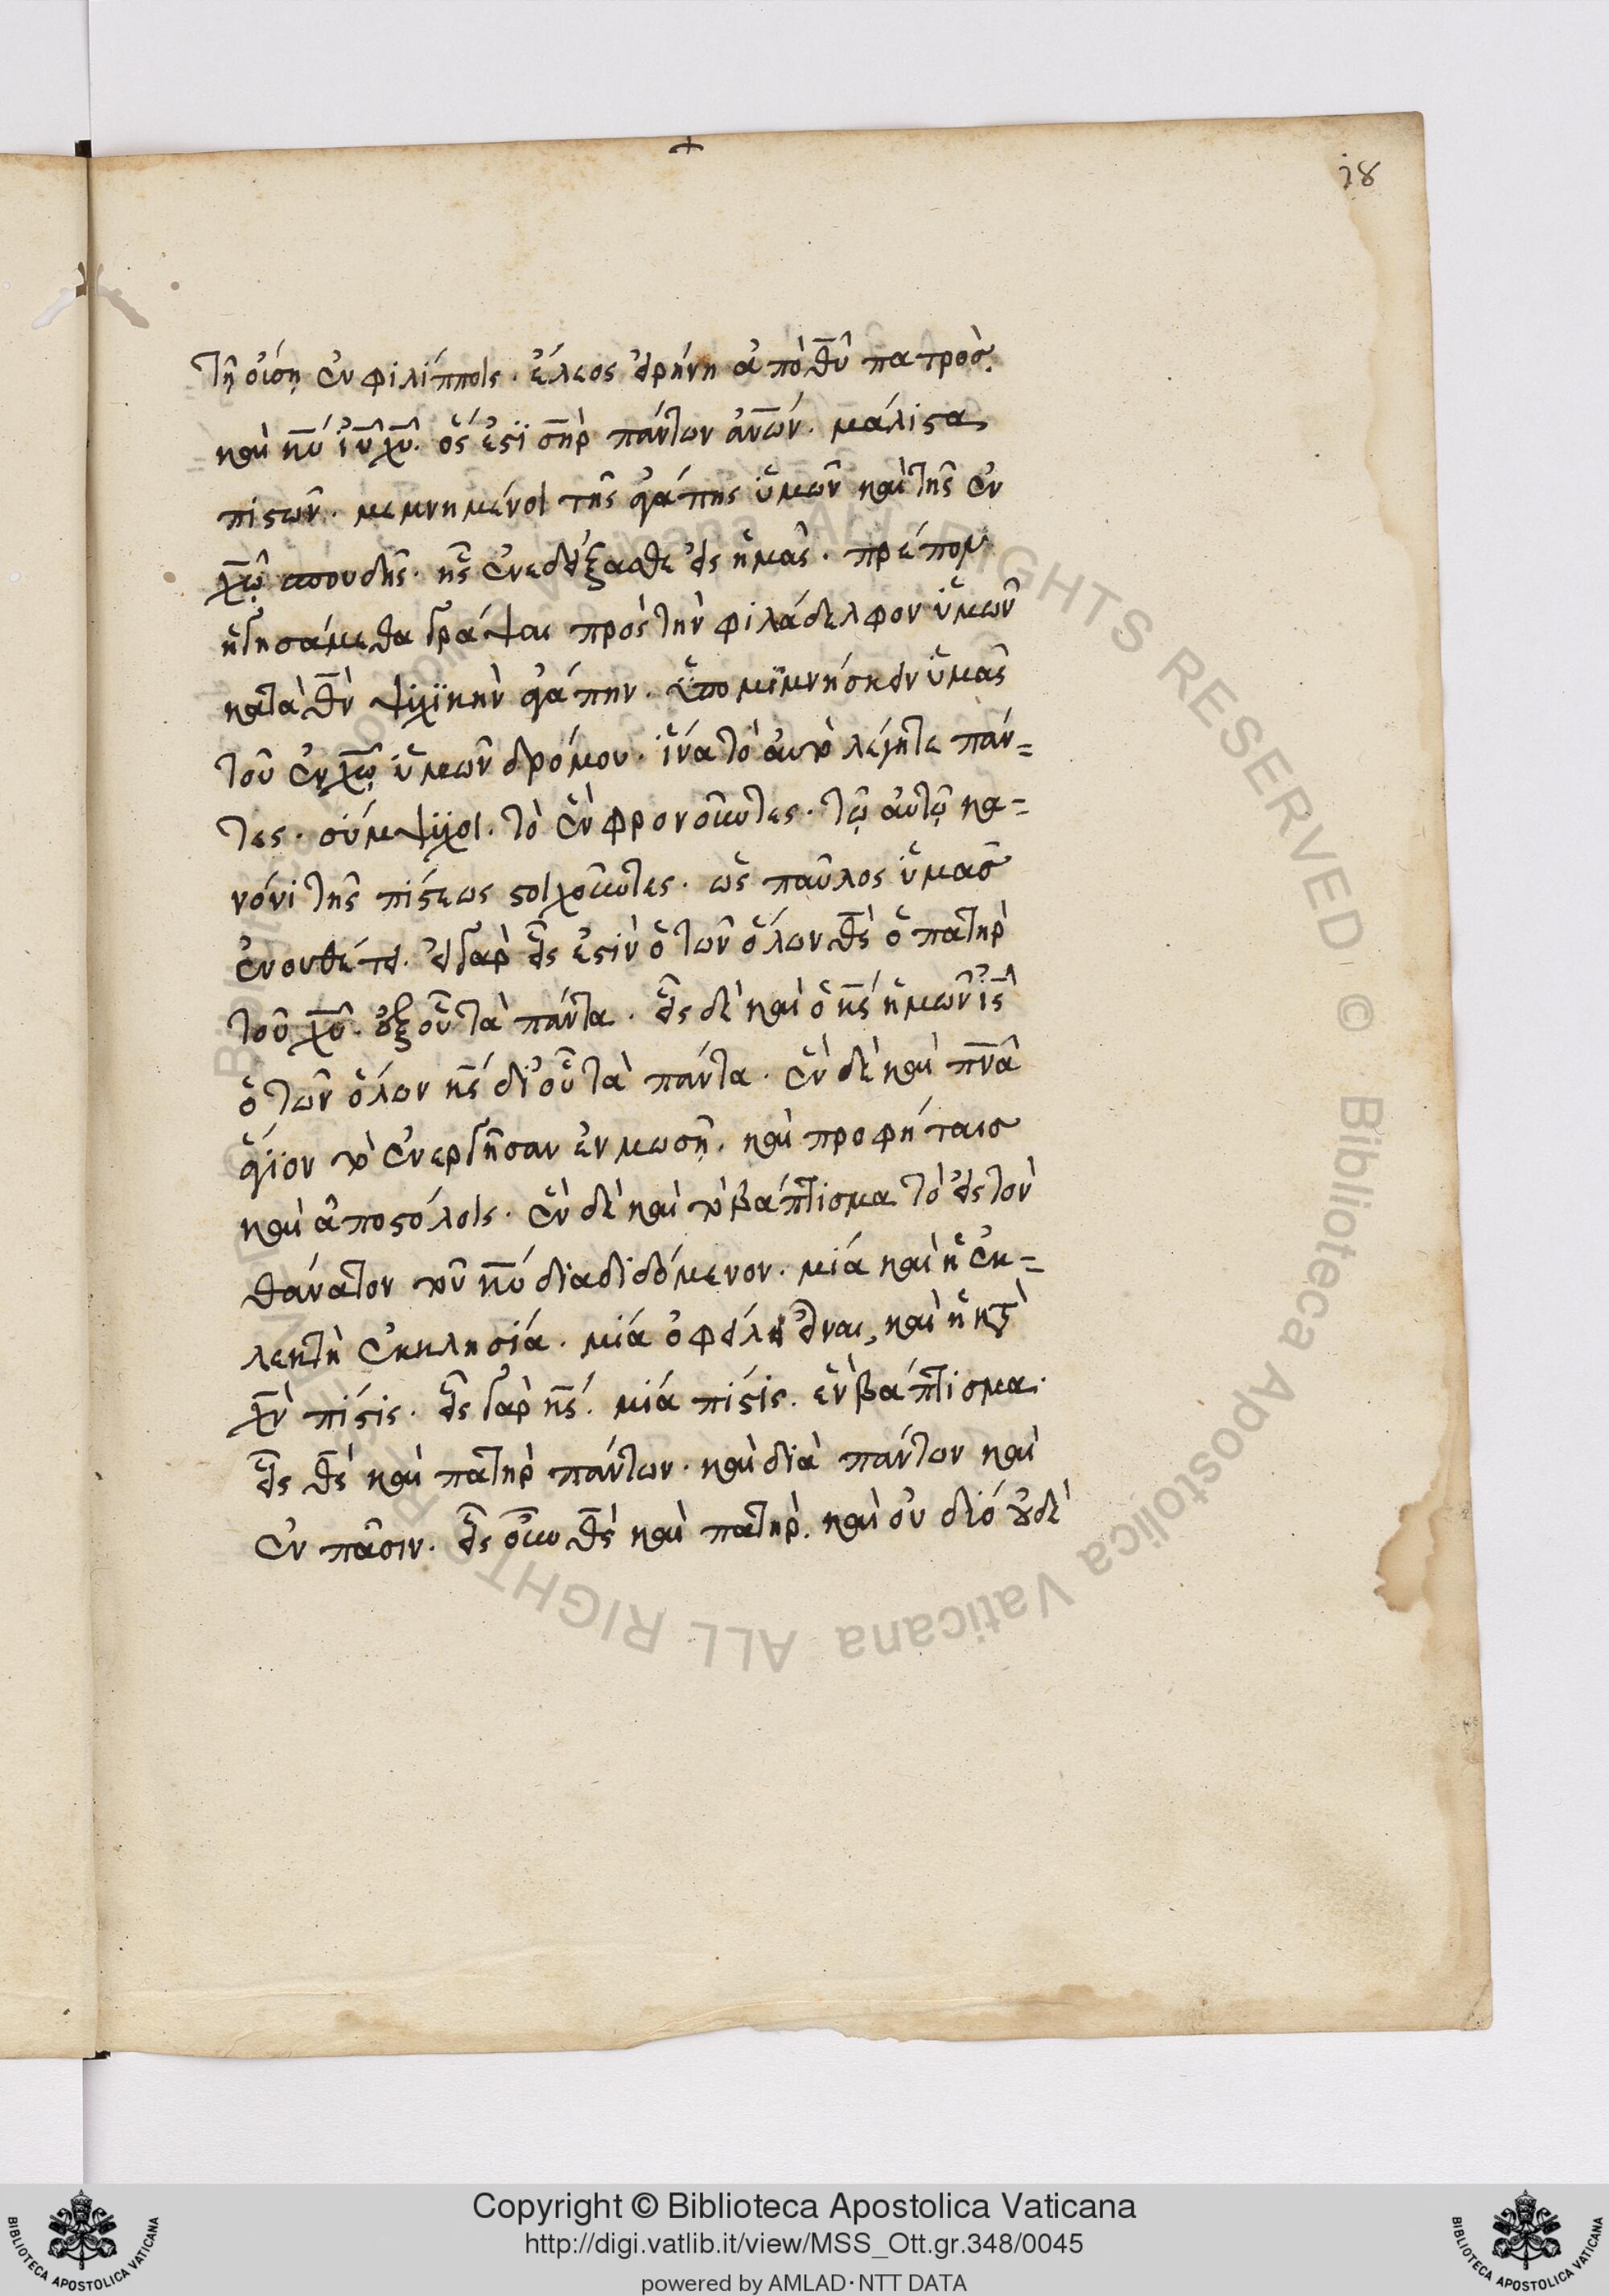 +
28
τῆ οὔση ἐν φιλίπποις· ἔλεος εἰρήνη ἀπὸ θ̅υ̅ πατρὸσ·
καὶ κ̅υ̅ ἰ̅υ̅ χ̅υ̅. ὅς ἐστϊ σ̅η̅ρ̅ πάντων ἀν̅ω̅ν̅. μάλιστα
πιστῶν· μεμνημένοι τῆς ἀγάπης ὑμῶν καὶ τῆς ἐν
χ̅ῶ̅ σπουδῆς· ἧς ἐνεδείξασθε εἰς ἡμᾶς· πρέπον
ἡγησάμεθα γράψαι πρὸς τὴν φιλάδελφον ὑμῶν
κατὰ θ̅ν̅ ψυχϊκὴν ἀγάπην· ὑπομϊμνήσκειν ὑμᾶς
τοῦ ἐν χ̅ῶ̅ ὑμῶν δρόμου· ἵνα τὸ αὐτὸ λέγητε πάν=
τες· σύμψυχοι· τὸ ἓν φρονοῦντες· τῶ αὐτῶ κα=
νόνι τῆς πίστεως στοιχοῦντες· ὡς παῦλος ὑμᾶσ
ἐνουθέτει· εἰ γὰρ εἷς ἐστιν ὁ τῶν ὅλων θ̅ς̅ ὁ πατὴρ
τοῦ χ̅υ̅. ἐξ οὗ τὰ πάντα· εἷς δὲ καὶ ὁ κ̅ς̅ ἡμῶν ἰ̅ς̅
ὁ τῶν ὅλων κ̅ς̅ δι' οὗ τὰ πάντα· ἓν δὲ καὶ π̅ν̅α̅
ἅγϊον τὸ ἐνεργῆσαν ἐν μωσῆ· καὶ προφήταισ
καὶ ἀποστόλοις· ἓν δὲ καὶ τὸ βάπτισμα τὸ εἰς τὸν
θάνατον τοῦ κ̅υ̅ διαδιδόμενον· μία καὶ ἡ ἐκ=
λεκτὴ ἐκκλησία· μία ὀφείλει εἶναι, καὶ ἡ κατὰ
χ̅ν̅ πίστις· εἷς γὰρ κ̅ς̅. μία πίστις. ἓν βάπτισμα·
εἷς θ̅ς̅ καὶ πατὴρ πάντων· καὶ διὰ πάντων καὶ
ἐν πᾶσιν· εἷς οὖν θ̅ς̅ καὶ πατὴρ. καὶ οὐ δύο οὐδὲ
Copyright © Biblioteca Apostolica Vaticana
http://digi.vatlib.it/view/MSS_Ott.gr.348/0045
powered by AMLAD·NTT DATA
BIBLIOTECA APOSTOLICA VATICANA
BIBLIOTECA APOSTOLICA VATICANA
© Biblioteca Apostolica Vaticana ALL RIGHTS RESERVED © Biblioteca Apostolica Vaticana ALL RIGHTS RESERVED